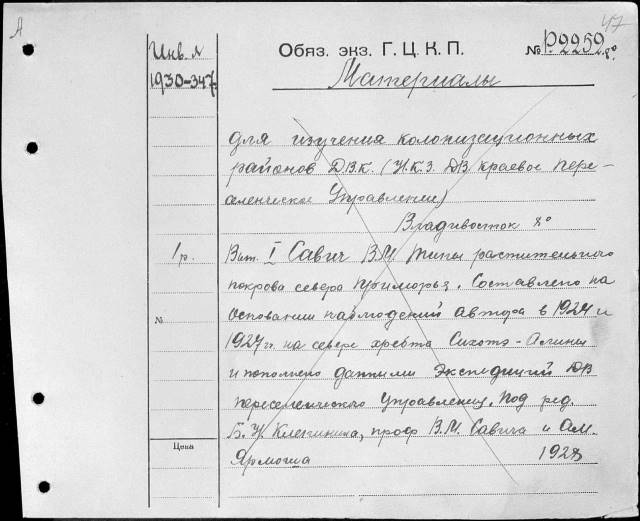 А
47
Инв. №
Обяз. экз. Г. Ц. К. П.
№ Р.2252 8°
1930-347
Материалы
для изучения колонизационных
районов Д.В.К. (Н.К.З. ДВ краевое Пере-
селенческое Управление)
Владивосток 8°
1 р.
Вып. I Савич В.М. Типы растительного
покрова севера Приморья. Составлено на
основании наблюдений автора в 1924 и
№
1927 гг. на севере хребта Сихотэ-Алиня
и пополнено данными Экспедиций ДВ
переселенческого Управления. Под ред.
Б. Н. Клепинина, проф В.М. Савича и Ам.
Цена
Ярмоша 1928